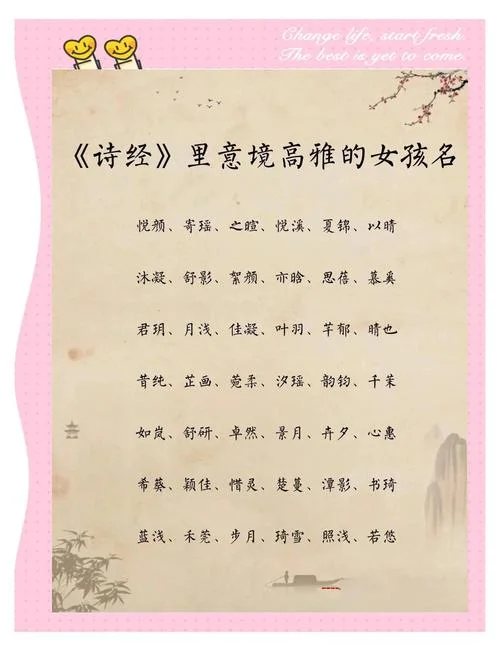 Change life, start fresh.
The best is yet to come.
《诗经》里意境高雅的女孩名
悦颜、寄瑶、之暄、悦溪、夏锦、以晴
沐凝、舒影、絮颜、亦晗、思蓓、慕奚
君玥、月浅、佳凝、叶羽、芊郁、晴也
昔纯、芷画、菀柔、汐瑶、韵钧、千茉
如岚、舒研、卓然、景月、卉夕、心惠
希葵、颖佳、惜灵、楚蔓、潭影、书琦
蓝浅、禾莞、步月、琦雪、照浅、若悠